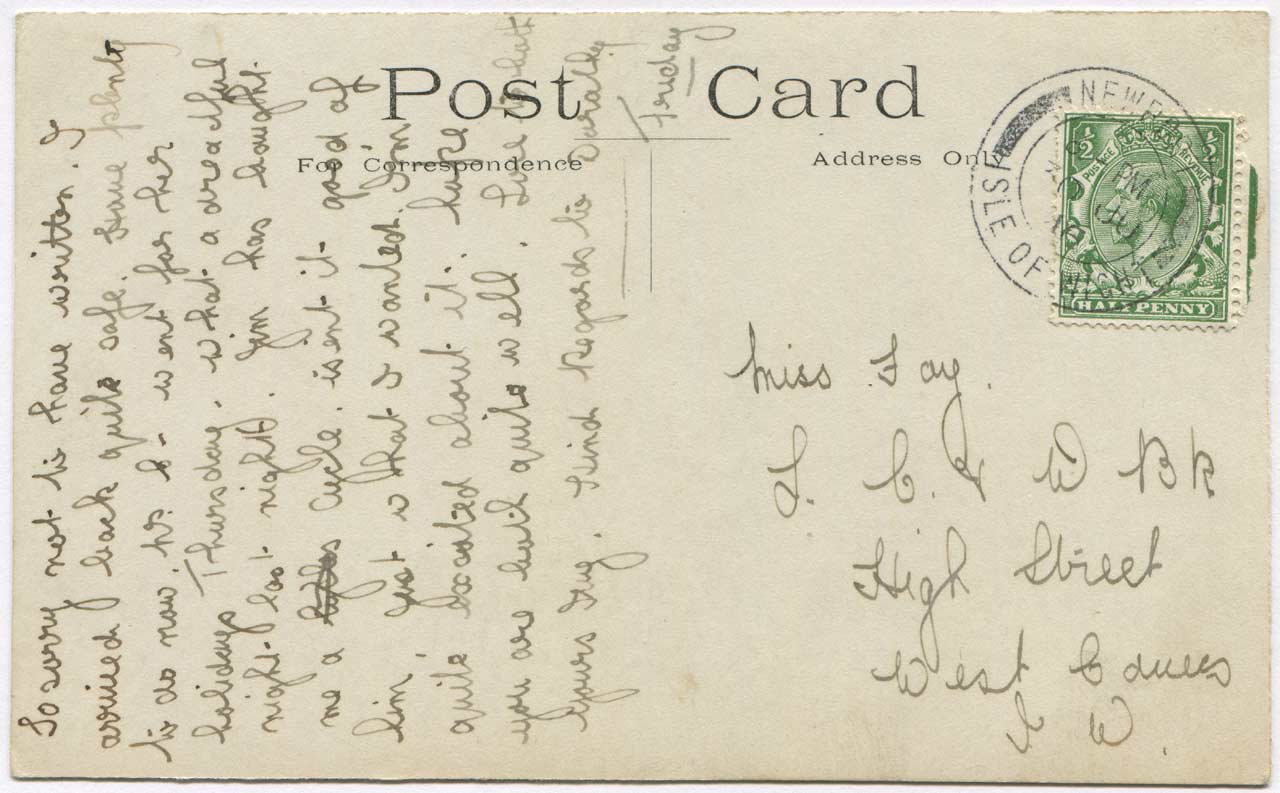 Post Card
For Correspondence
Address Only
So sorry not to have written. I
arrived back quite safe. Have plenty
to do now. went for her
holidays Thursday. what a dreadful
night last night. Jim has bought
me a cycle. isent it good of
him, just what I wanted. I'm
quite excited about it. hope
you are both quite well. Love
Yours Kind Regards to
Friday
Miss Fay.
L. C. & W Bk
High Street
West Cowes
I W.
ISLE OF WIGHT
½ ½
POSTAGE REVENUE
HALFPENNY